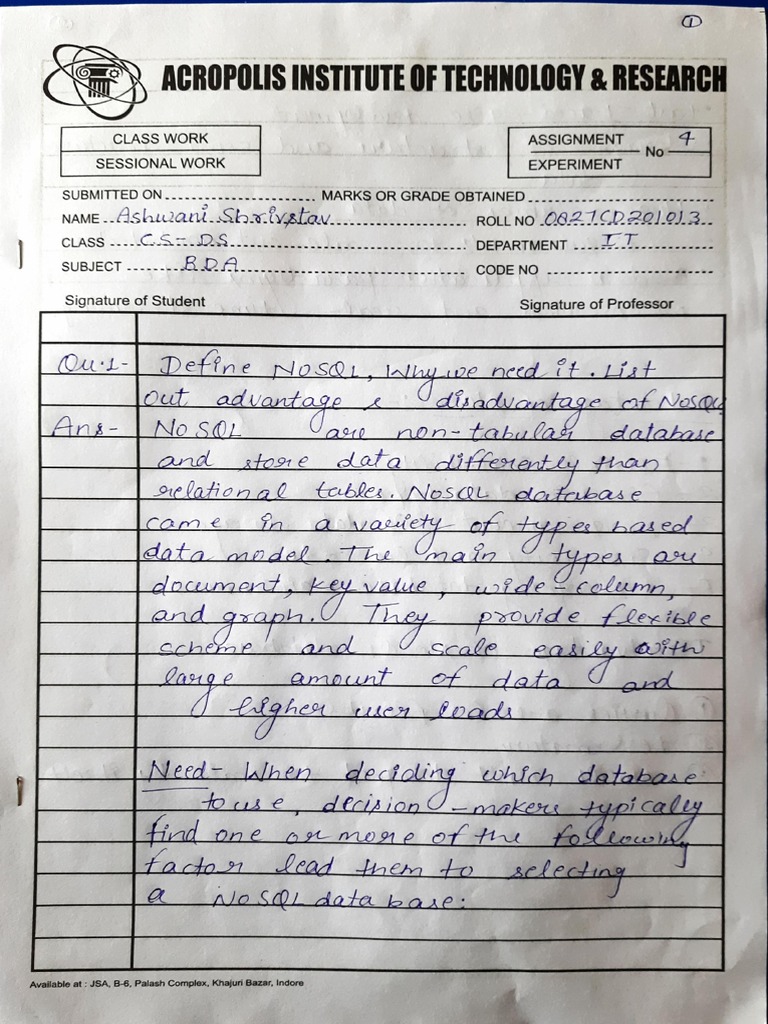 ①
ACROPOLIS INSTITUTE OF TECHNOLOGY & RESEARCH
CLASS WORK
SESSIONAL WORK
ASSIGNMENT
EXPERIMENT
No 4
SUBMITTED ON MARKS OR GRADE OBTAINED
NAME Ashwani Shrivstav ROLL NO 0827CD201013
CLASS CS-DS DEPARTMENT IT
SUBJECT BDA CODE NO
Signature of Student Signature of Professor
Qu.1- Define NoSQL, Why we need it. List
out advantage & disadvantage of NoSQL
Ans- NoSQL are non-tabular database
and store data differently than
relational tables. NoSQL database
came in a variety of types based
data model. The main types are
document, key value, wide-column,
and graph. They provide flexible
scheme and scale easily with
large amount of data and
higher user loads
Need- When deciding which database
to use, decision-makers typically
find one or more of the following
factor lead them to selecting
a NoSQL data base:
Available at : JSA, B-6, Palash Complex, Khajuri Bazar, Indore